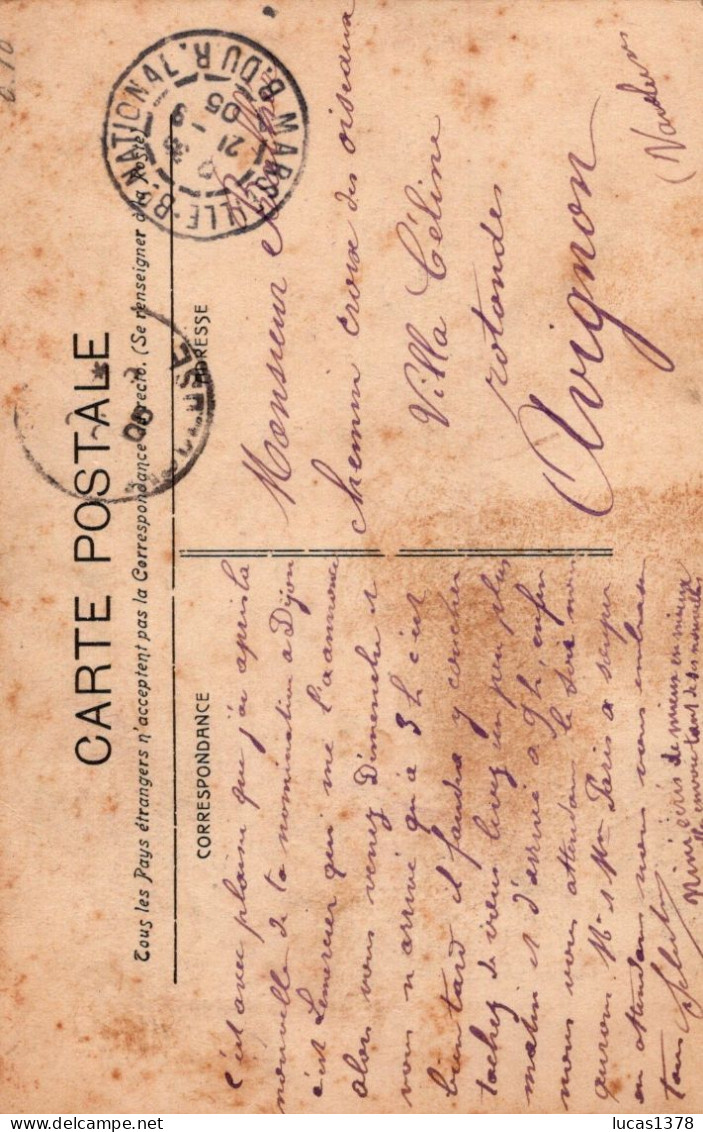 CARTE POSTALE
Tous les Pays étrangers n'acceptent pas la Correspondance au recto. (Se renseigner à la Poste)
CORRESPONDANCE
ADRESSE
MARSEILLE-B. NATIONAL. B. DU R.
21 -9
05
Monsieur
chemin croix des oiseaux
Villa Céline
rotondes
Avignon
(
c'est avec plaisir que j'ai apris la
nouvelle de ta nomination a Dijon
c'est Lemercier qui me l'a annoncé
alors vous venez Dimanche et
vous n'arrivé qu'à 3 h c'est
bien tard il faudra y coucher
tachez de venir un peu plus
matin et d'arrivé a 9 h enfin
nous vous attendons le soir nous
aurons Mr et Mme Paris a souper
en attendant nous vous embrassons
tous
Nini de mieux en mieux
nouvelles
lucas1378